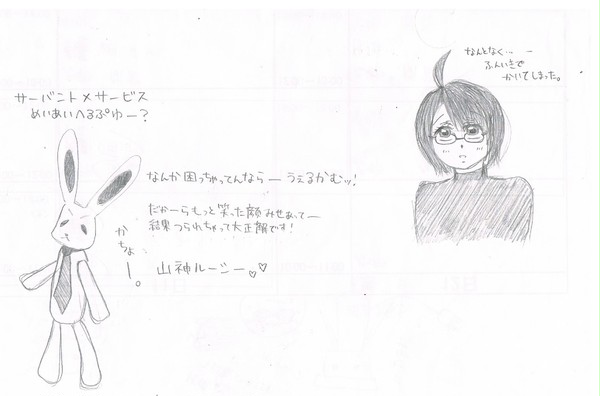 サーバント×サービス
めいあいへるぷゆー?
なんか困っちゃってんならー うぇるかむッ!
だかーらもっと笑った顔 みせあってー
結果 つられちゃって大正解です!
かちょー。
山神ルーシー。♡♡
なんとなく… ー
ふんいきで
かいてしまった。